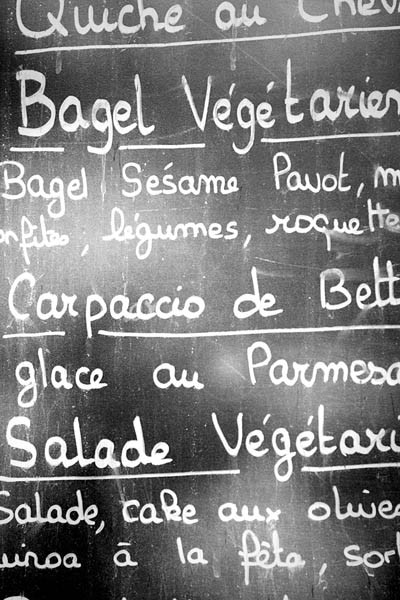 Quiche au Chèv
Bagel Végétarien
Bagel Sésame Pavot, m
onfites, légumes, roquette
Carpaccio de Bett
glace au Parmesa
Salade Végétari
Salade, cake aux olives
uinoa à la fêta, sor